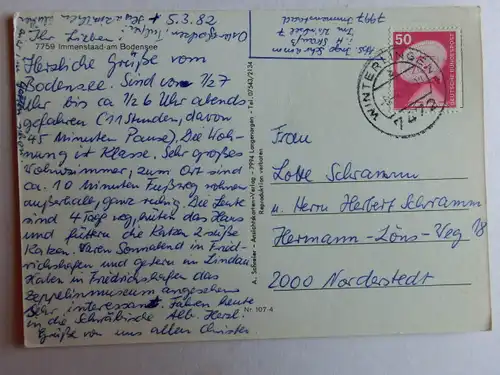 5.3.82
Ihr Lieben!
7759 Immenstaad am Bodensee
Herzliche Grüße vom
Bodensee. Sind von 1/27
Uhr bis ca 1/26 Uhr abends
gefahren (11 Stunden, davon
45 Minuten Pause). Die Woh-
nung ist Klasse, Sehr großes
Wohnzimmer, zum Ort sind
ca. 10 Minuten Fußweg wohnen
außerhalb, ganz ruhig. Die Leute
sind 4 Tage weg, hüten das Haus
und füttern die Katzen 2 süße
Katzen. Waren Sonnabend in Fried-
richshafen und gestern in Lindau
Haben in Friedrichshafen das
Zeppelinmuseum angesehen
Sehr interessant. Fahren heute
in die Schwäbische Alb. Herzl.
Grüße von uns allen Christa
A. Schreier - Ansichtskartenverlag - 7994 Langenargen - Tel. 07543/2134
Reproduktion verboten
Nr. 107-4
Abs. Inge Schramm
7997 Immenstaad
50
DEUTSCHE BUNDESPOST
WINTERLINGEN
Frau
Lotte Schramm
u. Herrn Herbert Schramm
Hermann-Löns-Weg 18
2000 Norderstedt